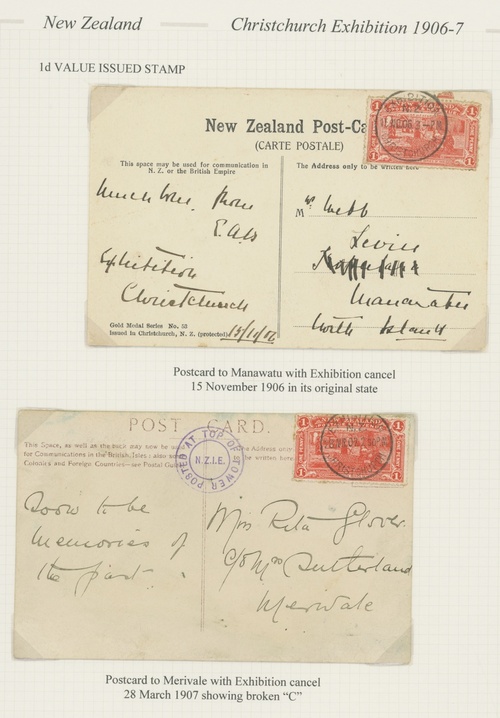 New Zealand
Christchurch Exhibition 1906-7
1d VALUE ISSUED STAMP
New Zealand Post-Ca
(CARTE POSTALE)
This space may be used for communication in
N. Z. or the British Empire
The Address only to be written here
Much love from
Exhibition
Christchurch
Gold Medal Series No.
Issued in Christchurch, N. Z. (protected)
M rs Webb
Levin
Manawatu
North Island
1 1
1 1
Postcard to Manawatu with Exhibition cancel
15 November 1906 in its original state
POST CARD.
This Space, as well as the back may now be used
for Communications in the British Isles: also some
Colonies and Foreign Countries—see Postal Guide
he Address only
be written here
POSTED AT TOP OF TOWER
N.Z.I.E.
1 1
Soon to be
memories of
the past.
Miss Rita Glover.
c/o Mrs Sutherland
Merivale
Postcard to Merivale with Exhibition cancel
28 March 1907 showing broken “C”